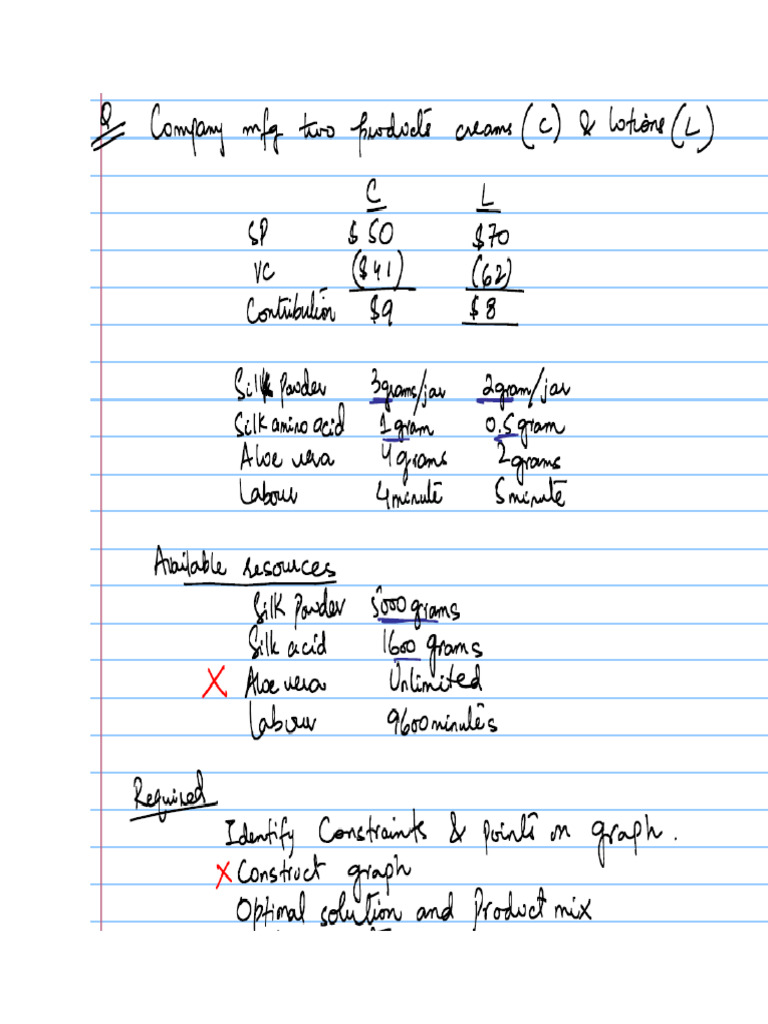 Q Company mfg two products creams (C) & lotions (L)
C L
SP $50 $70
VC ($41) (62)
Contribution $9 $8
Silk Powder 3grams/jar 2gram/jar
Silk amino acid 1gram 0.5gram
Aloe vera 4grams 2grams
Labour 4minute 5minute
Available resources
Silk Powder 5000grams
Silk acid 1600 grams
X Aloe vera Unlimited
Labour 9600minutes
Required
Identify Constraints & points on graph.
X Construct graph
Optimal solution and Product mix